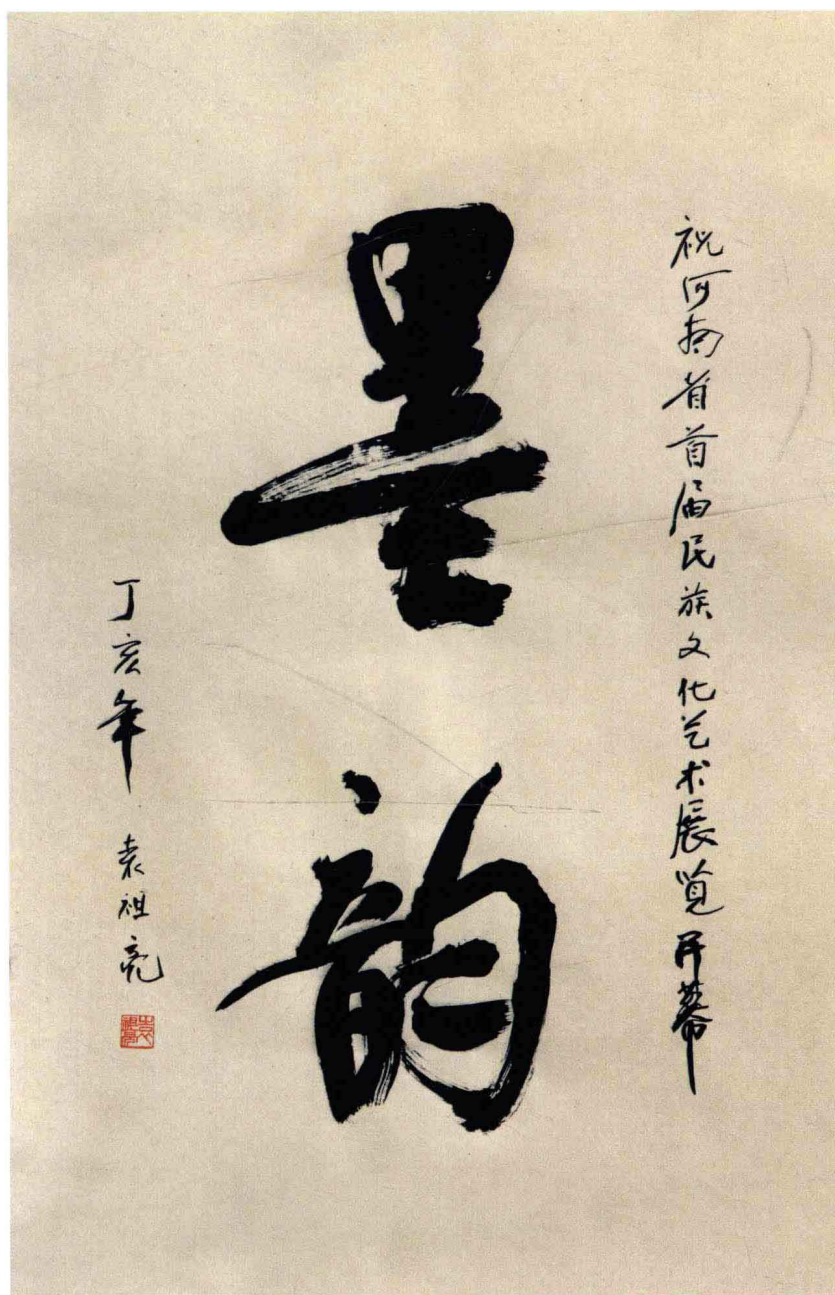 祝河南省首届民族文化艺术展览开幕
墨韵
丁亥年 袁祖亮